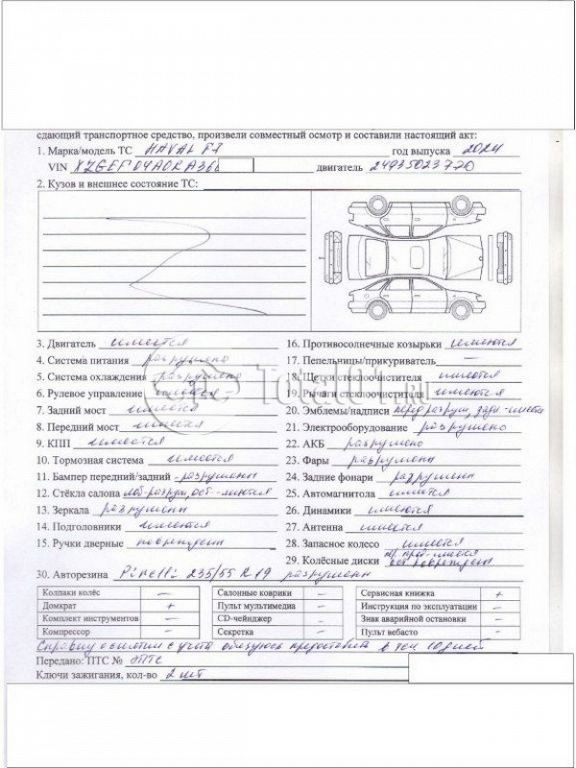 сдающий транспортное средство, произвели совместный осмотр и составили настоящий акт:
1. Марка/модель ТС HAVAL F7 год выпуска 2024
VIN XZGEF04A0RA36 двигатель 24935023770
2. Кузов и внешнее состояние ТС:
3. Двигатель имеется
4. Система питания разрушено
5. Система охлаждения разрушено
6. Рулевое управление имеется
7. Задний мост имеется
8. Передний мост имеется
9. КПП имеется
10. Тормозная система имеется
11. Бампер передний/задний - разрушены
12. Стёкла салона лоб-разруш, ост - имеются
13. Зеркала разрушены
14. Подголовники имеются
15. Ручки дверные повреждены
16. Противосолнечные козырьки имеются
17. Пепельницы/прикуриватель —
18. Щетки стеклоочистителя имеются
19. Рычаги стеклоочистителя имеются
20. Эмблемы/надписи перед разруш, задн - имеются
21. Электрооборудование разрушено
22. АКБ разрушено
23. Фары разрушены
24. Задние фонари разрушены
25. Автомагнитола имеется
26. Динамики имеются
27. Антенна имеется
28. Запасное колесо имеется
29. Колёсные диски ост повреждены
30. Авторезина Pirelli 235/55 R19 разрушены
Total01.ru
Колпаки колёс — Салонные коврики — Сервисная книжка +
Домкрат + Пульт мультимедиа — Инструкция по эксплуатации —
Комплект инструментов — CD-чейнджер — Знак аварийной остановки —
Компрессор — Секретка — Пульт вебасто —
Справку о снятии с учета обязуюсь предоставить в теч 10 дней
Передано: ПТС № ЭПТС
Ключи зажигания, кол-во 2 шт